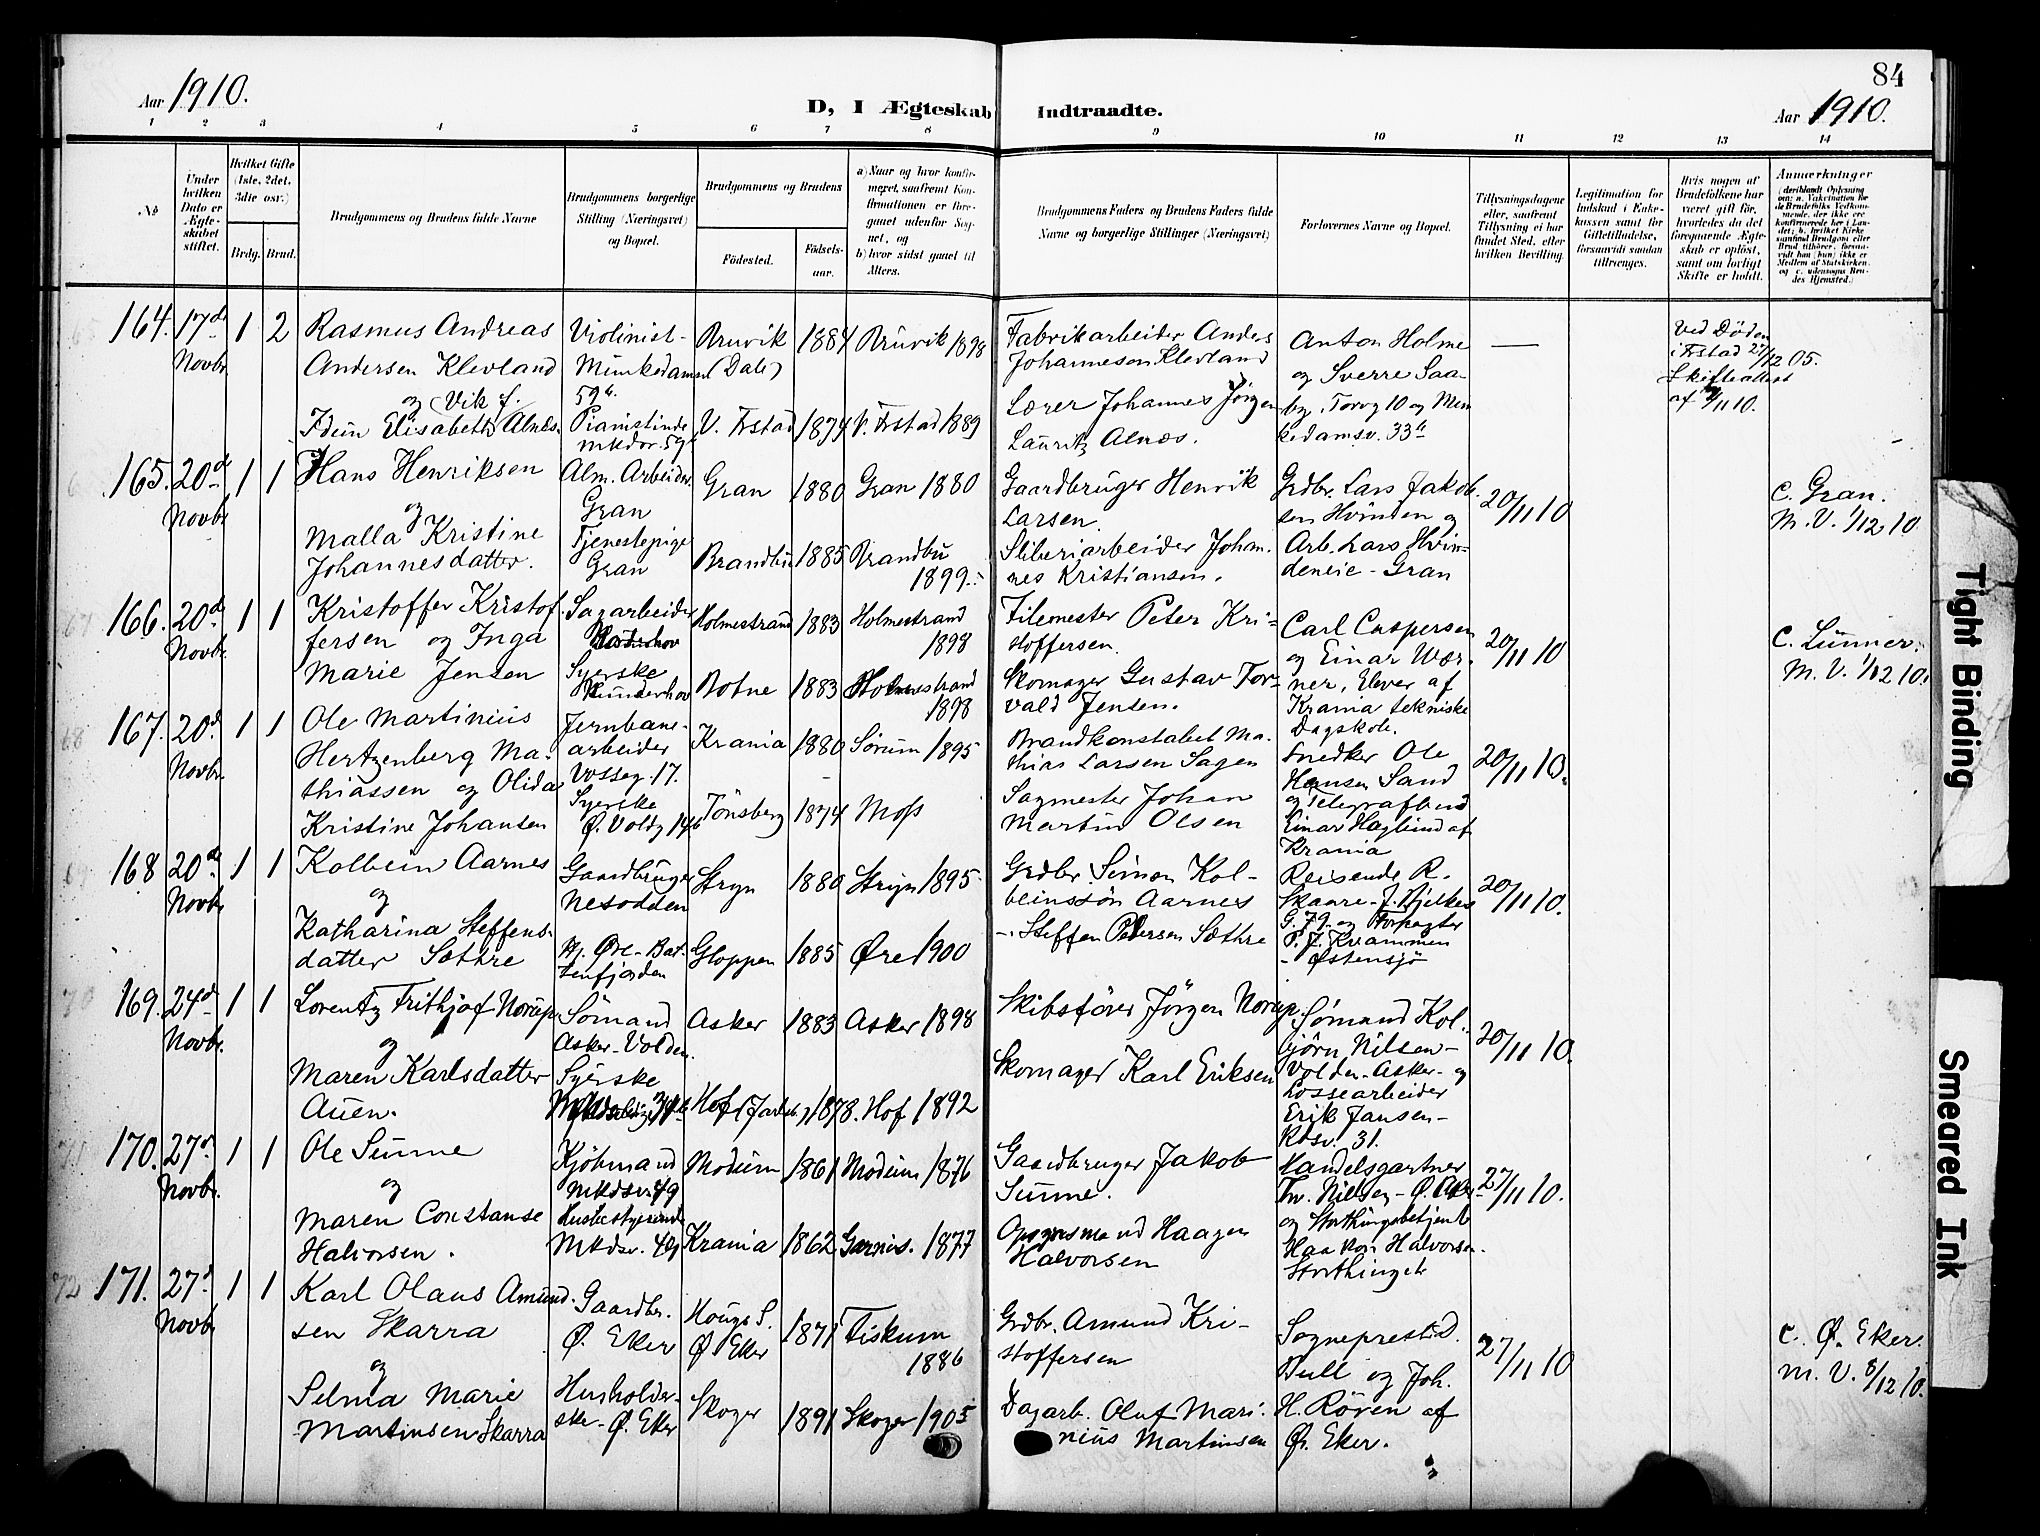 84
Aar 1910.
D, I Ægteskab Indtraadte.
Aar 1910.
1 2 3 4 5 6 7 8 9 10 11 12 13 14
No
Under hvilken Dato er Ægteskabet stiftet.
Hvilket Gifte (1ste, 2det, 3die osv.)
Brdg. Brud.
Brudgommens og Brudens fulde Navne
Brudgommens borgerlige Stilling (Næringsvei) og Bopæl.
Brudgommens og Brudens
Fødested.
Fødselsaar.
a) Naar og hvor konfirmeret, saafremt Konfirmationen er foregaaet udenfor Sognet, og
b) hvor sidst gaaet til Alters.
Brudgommens Faders og Brudens Faders fulde Navne og borgerlige Stillinger (Næringsvei)
Forlovernes Navne og Bopæl.
Tillysningsdagene eller, saafremt Tillysning ei har fundet Sted, efter hvilken Bevilling.
Legitimation for Indskud i Enkekassen samt for Giftetilladelse, forsaavidt saadan tiltrænges.
Hvis nogen af Brudefolkene har været gift før, hvorledes da det foregaaende Ægteskab er opløst, samt om lovligt Skifte er holdt.
Anmærkninger
164. 17de Novbr. 1 2
Rasmus Andreas
Andersen Klevland
og Vik f.
Elisabeth Alnæs.
Violinist
59
Pianistinde
Bruvik (Dale) 1884 Bruvik 1898
V. Fstad 1874 V. Fstad 1889
Fabrikarbeider Anders
Johanneson Klevland
Lærer Johannes Jörgen
Lauritz Alnæs.
Anton Holme
og Sverre Saa-
by, Torvg 10 og Mun
kedamsv. 33
—
Ved Døden
i Fstad 27/12 05.
Skifteattest
165. 20de Novbr 1 1
Hans Henriksen
og
Malla Kristine
Johannesdatter.
Alm. Arbeider.
Gran
Tjenestepige
Gran
Gran 1880 Gran 1880
Brandbu 1885 Brandbu
1899.
Gaardbruger Henrik
Larsen.
Sliberiarbeider Johan.
nes Kristiansen.
Grdbr. Lars Jakob.
sen Hvinden og
Arb. Lars Hvin=
deneie - Gran
20/11 10
C. Gran.
M. V. 1/12 10.
166. 20de Novbr. 1 1
Kristoffer Kristof.
fersen og Inga
Marie Jensen
Sagarbeider
Syerske
Holmestrand 1883 Holmestrand
1898
Botne 1883 Holmestrand
1898
Filemester Peter Kri=
stoffersen.
Skomager Gustav Tor=
vald Jensen.
Carl Caspersen
og Einar Wær.
ner, Elever af
Krania tekniske
Dagskole.
20/11 10
C. Lunner.
M. V. 1/12 10.
167. 20de Novbr. 1 1
Ole Martinius
Hertzenberg Ma-
thiassen og Olida
Kristine Johansen
Jernbane-
arbeider
Vosseg. 17.
Syerske
Ø. Voldg 14b
Krania 1880 Sørum 1895
Tönsberg 1874 Moss
Brandkonstabel Ma.
thias Larsen Sagen
Sagmester Johan
Martin Olsen
Snedker Ole
Hansen Sand
og Telegrafbud
Einar Haglund af
Krania
20/11 10.
168 20de Novbr 1 1
Kolbein Aarnes
og
Katharina Steffens-
datter Sæthre
Gaardbruger
Nesodden
Pg. Øre - Bat-
tenfjorden
Stryn 1880 Stryn 1895
Gloppen 1885 Øre 1900
Grdbr. Simon Kol-
beinssön Aarnes
-. Steffen Petersen Sæthre
Reisende R.
Skaare - J. Bjelkes
G. 79. og Forpagter
P. J. Krammen
- Østensjö
20/11 10.
169. 24de Novbr. 1 1
Lorentz Frithjof Norup
og
Maren Karlsdatter
Auen.
Sömand
Asker - Volden.
Syerske
Asker 1883 Asker 1898
Hof (Jarlsb.) 1878. Hof 1892
Skibsförer Jörgen Norup.
Skomager Karl Eriksen
Sömand Kol.
björn Nilsen -
Volden - Asker - og
Lossearbeider
Erik Jansen -
Rosv. 31.
20/11 10.
170. 27de Novbr. 1 1
Ole Sunne
og
Maren Constanse
Halvorsen.
Kjöbmand
Mkdsv. 49
Husbestyrerinde
Mkdsv. 49
Modum 1861 Modum 1876
Krania 1862 Garnis. 1877
Gaardbruger Jakob
Sunne.
Opsynsmand Haagen
Halvorsen
Handelsgartner
Thv. Nielsen - Ø. Aker
og Storthingsbetjent
Haakon Halvorsen.
Storthinget
27/11 10.
171. 27de Novbr 1 1
Karl Olaus Amund.
sen Skarra
og
Selma Marie
Martinsen Skarra
Gaardbr.
Ø. Eker
Husholder-
ske - Ø. Eker
Hougs S.
Ø. Eker 1871 Fiskum
1886
Skoger 1891 Skoger 1905
Grdbr. Amund Kri-
stoffersen
Dagarb. Oluf Mari.
nius Martinsen
Sogneprest D.
Bull og Joh.
H. Røren af
Ø. Eker.
27/11 10
C. Ø. Eker.
M. V. 8/12 10.
Tight Binding
Smeared Ink